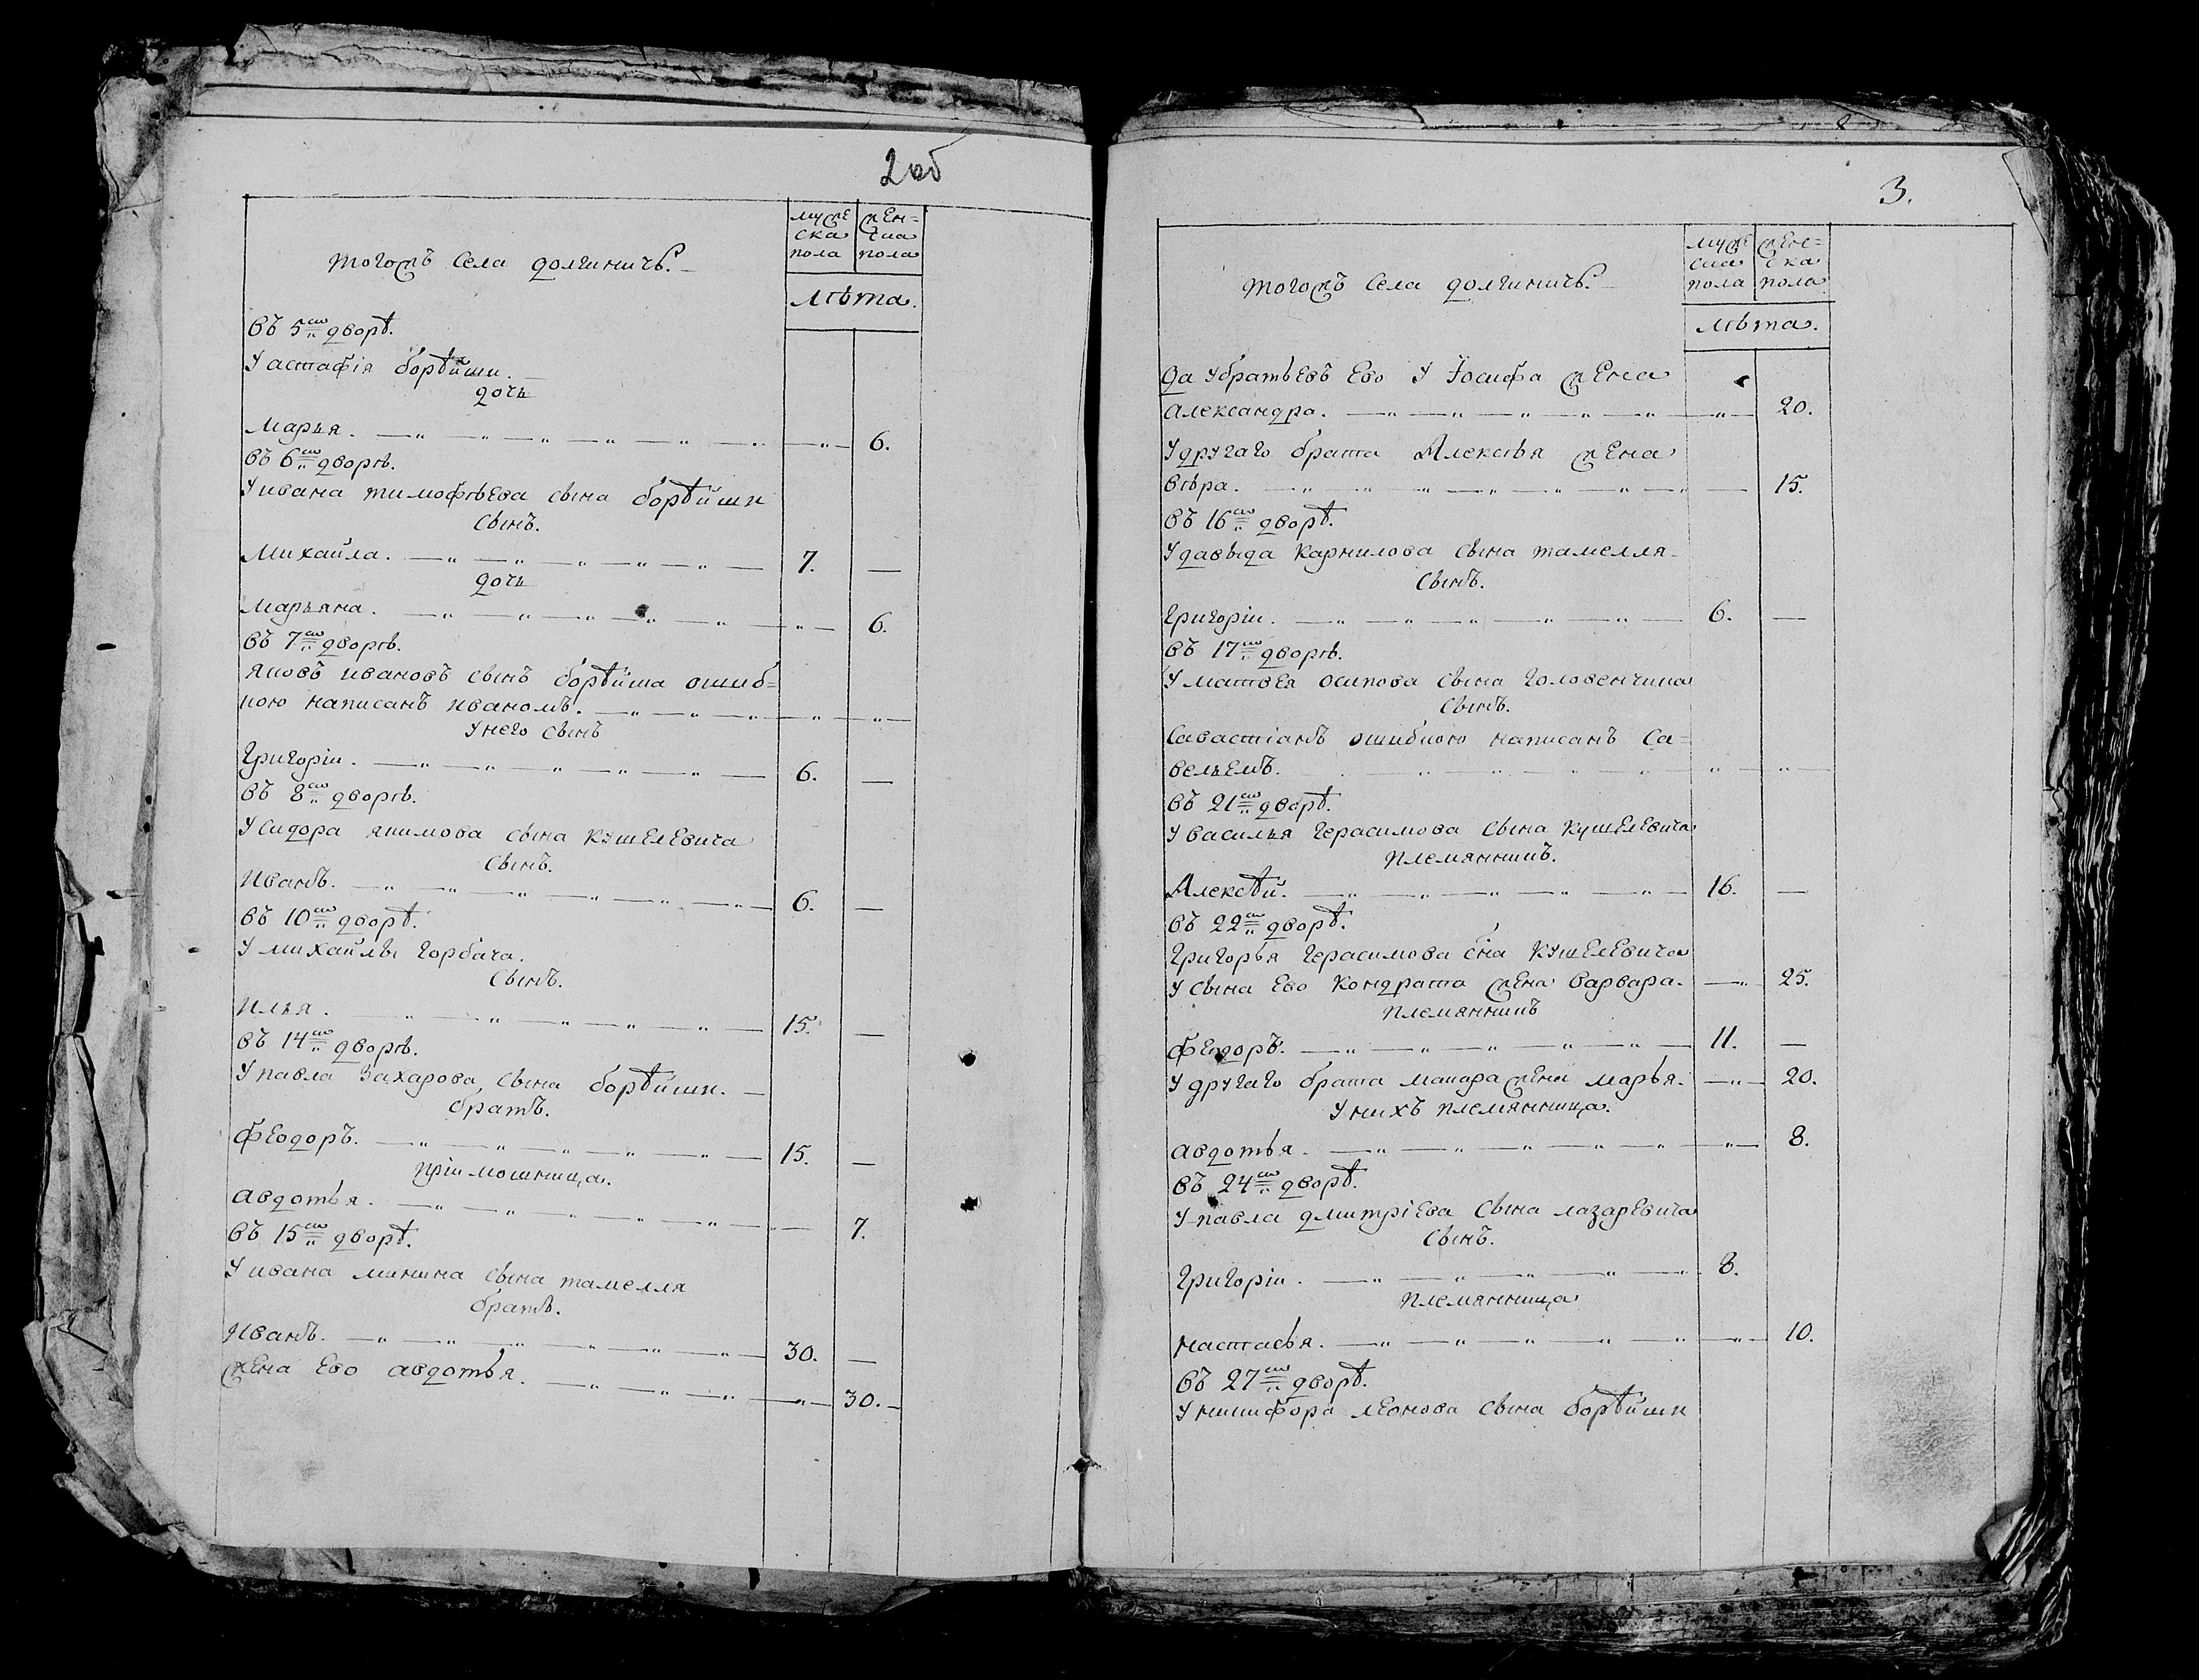 2 об
тогожъ села долгиничъ.
муже
ска
пола
жен-
ска
пола
лѣта.
въ 5мъ дворѣ.
У астафія борѣйши.
дочь
Марья. 6.
въ 6мъ дворѣ.
У ивана тимофѣева сына борѣйши
сынъ.
Михайла. 7. —
дочь
Марьяна. 6.
въ 7мъ дворѣ.
яковъ ивановъ сынъ борѣйша ошиб=
кою написанъ иваномъ.
у него сынъ
Григоріи. 6. —
въ 8мъ дворѣ.
У Сидора якимова сына кушелевича
сынъ.
Иванъ. 6. —
въ 10мъ дворѣ.
У михайлы горбача.
сынъ.
Илья. 15. —
въ 14мъ дворѣ.
У павла захарова сына борѣйши.
братъ.
Феодоръ. 15. —
пріимошница.
авдотья. 7.
въ 15мъ дворѣ.
У ивана минина сына тамелля
братъ.
Иванъ. 30. —
жена ево авдотья. 30.
3.
тогожъ села долгиничъ.
муже
ска
пола
жен=
ска
пола
лѣта.
да у братьевъ ево у Іосифа жена
александра. 20.
У другаго брата Алексѣя жена
вѣра. 15.
въ 16мъ дворѣ.
У давыда карнилова сына тамелля
сынъ.
Григоріи. 6. —
въ 17мъ дворѣ.
У матвея осипова сына головенчица
сынъ.
Савастіанъ ошибкою написанъ са=
вельемъ.
въ 21мъ дворѣ.
У василья герасимова сына кушелевича
племянникъ.
Алексѣй. 16. —
въ 22мъ дворѣ.
григорья герасимова сна кушелевича
У сына ево кондрата жена варвара. 25.
племянникъ
феодоръ. 11. —
У другаго брата макара жена марья. 20.
у нихъ племянница.
авдотья. 8.
въ 24мъ дворѣ.
У павла дмитріева сына лазаревича
сынъ.
Григоріи. 8.
племянница
настасья. 10.
въ 27мъ дворѣ.
У никифора леонова сына борѣйши